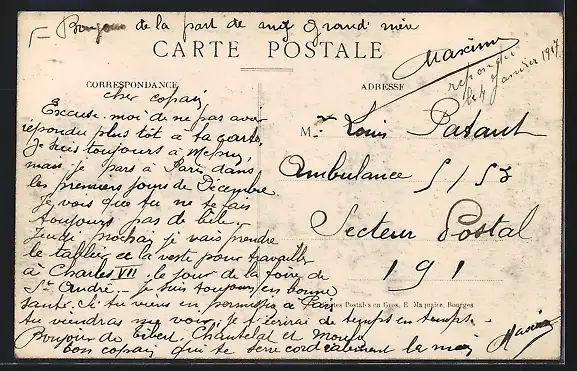 Bonjour de la part de ma grand' mère
CARTE POSTALE
Maxime
répondu
le 4 Janvier 1917
CORRESPONDANCE
ADRESSE
cher copain
Excuse-moi de ne pas avoir
répondu plus tôt à ta carte.
Je suis toujours à
mais je pars à Paris dans
les premiers jours de Décembre
Je vois que tu ne te fais
toujours pas de bile.
Jeudi prochain je vais prendre
le tablier et la veste pour travailler
à Charles VII. le jour de la foire de
St André. – Je suis toujours en bonne
santé. Si tu viens en permission à Paris
tu viendras me voir, je t'écrirai de temps en temps.
Bonjour de Chantelat et
ton copain qui te serre cordialement la main
Maxime
M. Louis Patant
Ambulance 5/53
Secteur Postal
191
Cartes Postales en Gros, E. Maquaire, Bourges